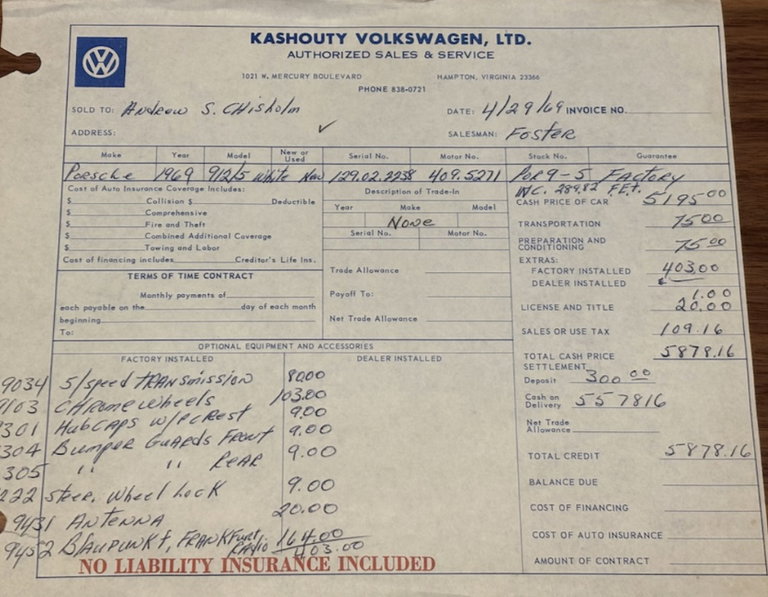 KASHOUTY VOLKSWAGEN, LTD.
AUTHORIZED SALES & SERVICE
1021 W. MERCURY BOULEVARD HAMPTON, VIRGINIA 23366
PHONE 838-0721
SOLD TO: Andrew S. Chisholm DATE: 4/29/69 INVOICE NO.
ADDRESS: ✓ SALESMAN: FOSTER
Make Year Model New or Used Serial No. Motor No. Stock No. Guarantee
Porsche 1969 912/5 White New 129.02.2238 409.5271 POR9-5 FACTORY
INC. 289.82 F.E.T.
Cost of Auto Insurance Coverage Includes:
$ Collision $ Deductible
$ Comprehensive
$ Fire and Theft
$ Combined Additional Coverage
$ Towing and Labor
Cost of financing includes Creditor's Life Ins.
TERMS OF TIME CONTRACT
Monthly payments of
each payable on the day of each month
beginning
To:
Description of Trade-In
Year Make Model
None
Serial No. Motor No.
Trade Allowance
Payoff To:
Net Trade Allowance
CASH PRICE OF CAR 5195.00
TRANSPORTATION 75.00
PREPARATION AND CONDITIONING 75.00
EXTRAS:
FACTORY INSTALLED 403.00
DEALER INSTALLED
1.00
LICENSE AND TITLE 20.00
SALES OR USE TAX 109.16
TOTAL CASH PRICE 5878.16
SETTLEMENT
Deposit 300.00
Cash on Delivery 557816
Net Trade Allowance
TOTAL CREDIT 5878.16
BALANCE DUE
COST OF FINANCING
COST OF AUTO INSURANCE
AMOUNT OF CONTRACT
OPTIONAL EQUIPMENT AND ACCESSORIES
FACTORY INSTALLED DEALER INSTALLED
9034 5/speed TRANSmission 80.00
9103 CHRome wheels 103.00
301 HubCAPS w/PCRest 9.00
304 Bumper GuARds FRont 9.00
305 " " ReAR 9.00
222 Steer. Wheel Lock 9.00
9431 ANTENNA 20.00
9452 BLAUPUNKT, FRANKFurt RAdio 164.00
403.00
NO LIABILITY INSURANCE INCLUDED